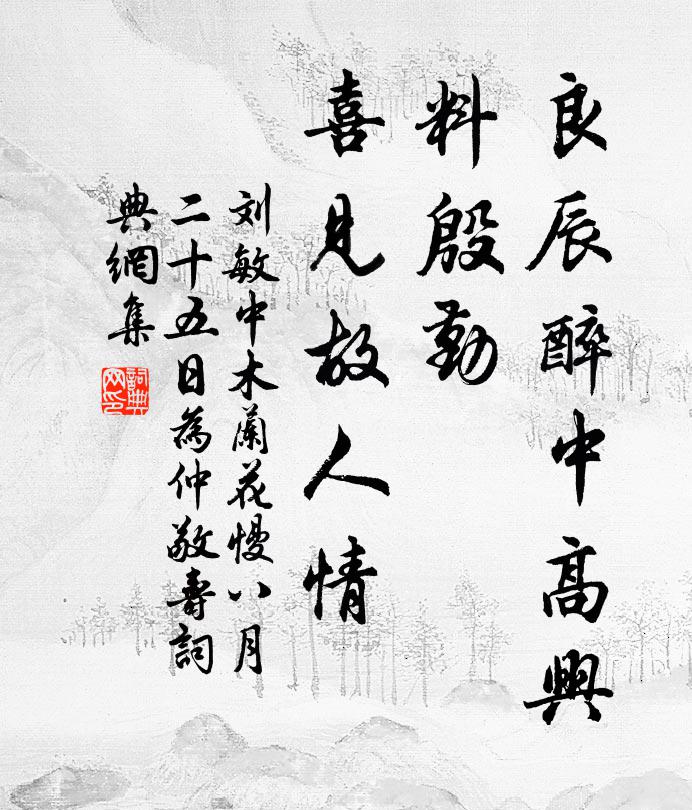 良辰醉中高興
料殷勤
喜見故人情
刘敏中木蘭花慢八月
二十五日為仲敬壽詞
典網集
詞典
网印